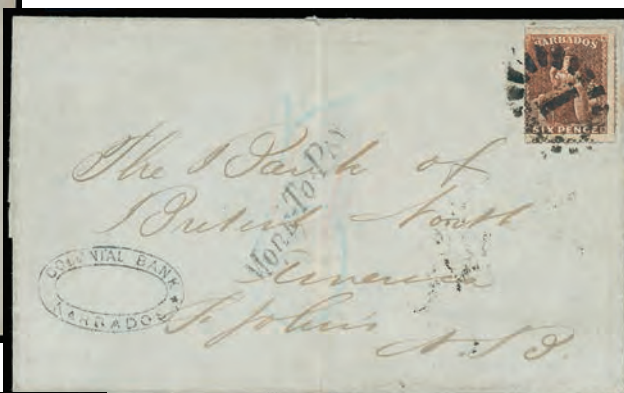 BARBADOS
SIX PENCE
1
The Bank of
British North
America
St John's
MORE TO PAY
COLONIAL BANK
BARBADOS